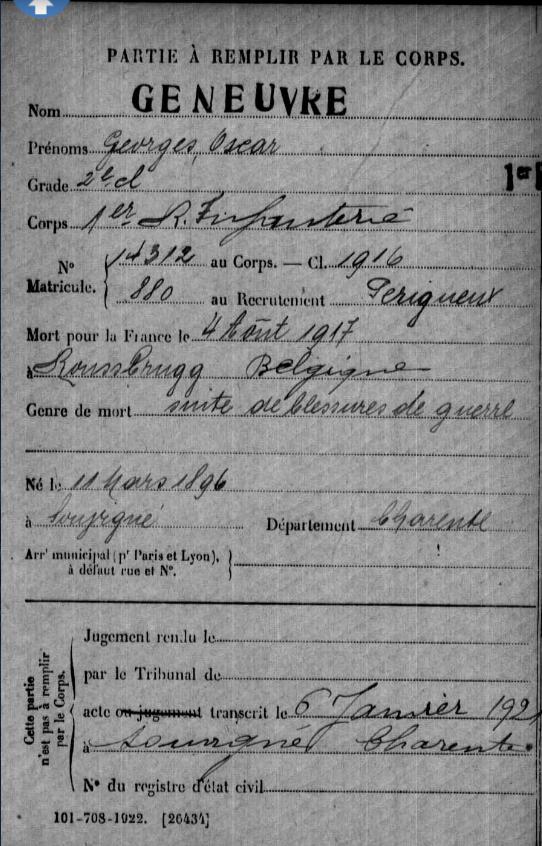 PARTIE À REMPLIR PAR LE CORPS.
Nom GENEUVRE
Prénoms Georges, Oscar
Grade 2e cl
1er
Corps 1er R. Infanterie
No Matricule. 14312 au Corps. — Cl. 1916
880 au Recrutement Perigueux
Mort pour la France le 4 Août 1917
à Rousbrugg Belgique
Genre de mort suite de blessures de guerre
Né le 11 Mars 1896
à Souvigné Département Charente
Arrt municipal (pr Paris et Lyon),
à défaut rue et No.
Cette partie n'est pas à remplir par le Corps.
Jugement rendu le
par le Tribunal de
acte ou jugement transcrit le 6 Janvier 192
à Souvigné Charente.
No du registre d'état civil
101-708-1922. [26434]